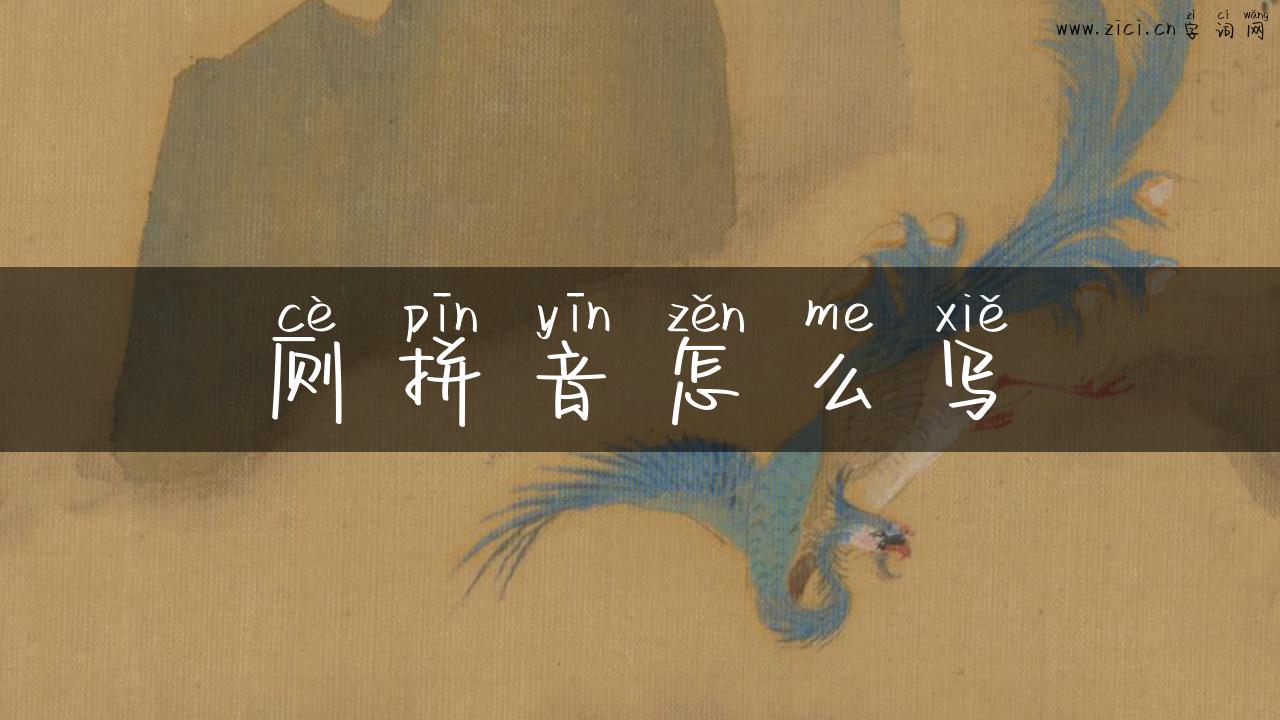 zì cí wǎng
www.zici.cn 字词网
cè pīn yīn zěn me xiě
厕拼音怎么写